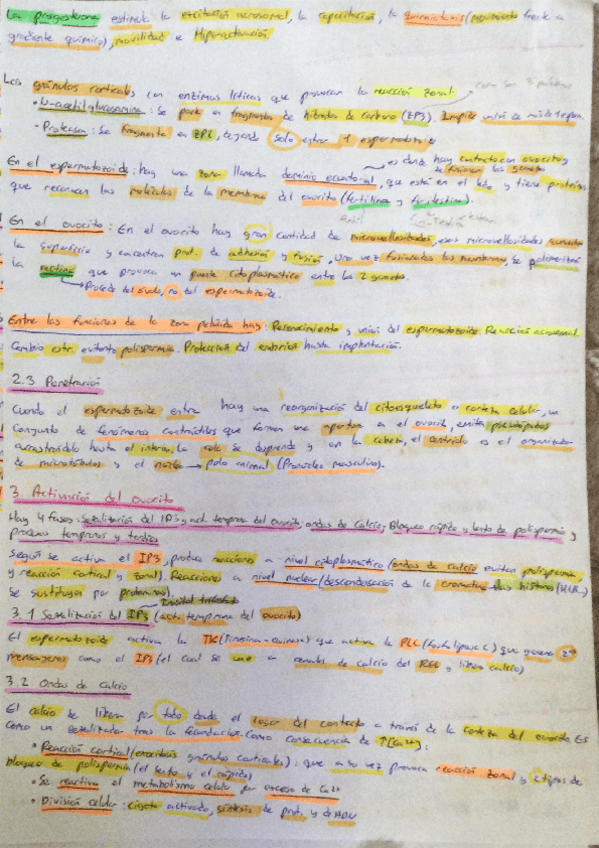 La progesterona estimula la excitación acrosomal, la capacitación, la quimiotaxis (movimiento frente a
gradiente químico), movilidad e Hiperactivación
Los gránulos corticales con enzimas líticas que provocan la reacción zonal:
• N-acetilglucosamina: Se parte en fragmentos de hidratos de carbono (ZP3). Impide unión de más de 1 esperm.
• Proteasa: Se fragmenta en ZP2, dejando solo entrar 1 espermatozoide
En el espermatozoide: hay una zona llamada dominio ecuatorial, que está en el lado y tiene proteínas
es donde hay contacto con ovocito y se fusionan los gametos
que reconocen las moléculas de la membrana del ovocito (fertilina y
En el ovocito: En el ovocito hay gran cantidad de microvellosidades, esas microvellosidades
la superficie y encuentran prot. de adhesión y fusión, una vez fusionadas las membranas, se polimeriza
la actina que provoca un puente citoplasmático entre los 2 gametos.
Procede del óvulo, no del espermatozoide.
Entre las funciones de la zona pelúcida hay: Reconocimiento y unión del espermatozoide. Reacción acrosomal.
Cambio estr. evitando polispermia. Protección del embrión hasta implantación.
2.3 Penetración
Cuando el espermatozoide entra hay una reorganización del citoesqueleto o corteza celular, un
conjunto de fenómenos contráctiles que forman una apertura a el ovocito, emite pseudópodos
arrastrándolo hasta el interior, la cola se desprende y en la cabeza, el centriolo es el organizador
de microtúbulos y el núcleo → polo animal (Pronúcleo masculino).
3. Activación del ovocito
Hay 4 fases: Señalización del IP3 y act. temprana del ovocito; ondas de calcio; Bloqueo rápido y lento de polispermia y
procesos tempranos y tardíos
Según se activa el IP3, produce reacciones a nivel citoplasmático (ondas de calcio evitan polispermia,
y reacción cortical y zonal). Reacciones a nivel nuclear (descondensación de la cromatina las histonas
se sustituyen por protaminas).
3.1 Señalización del IP3 (acto temprano del ovocito)
El espermatozoide activa la TK (Tirosina-quinasa) que activa la PLC (fosfolipasa C) que genera 2os
mensajeros como el IP3 (el cual se une a canales de calcio del REL y libera calcio)
3.2 Ondas de calcio
El calcio se libera por todo desde el lugar del contacto a través de la corteza del ovocito. Es
como un señalizador tras la fecundación. Como consecuencia de ↑[Ca2+]:
• Reacción cortical (exocitosis gránulos corticales): que a su vez provoca reacción zonal y 2 tipos de
bloqueo de polispermia (el lento y el rápido)
• Se reactiva el metabolismo celular por exceso de Ca2+
• División celular: cigoto activado, síntesis de prot. y de ADN